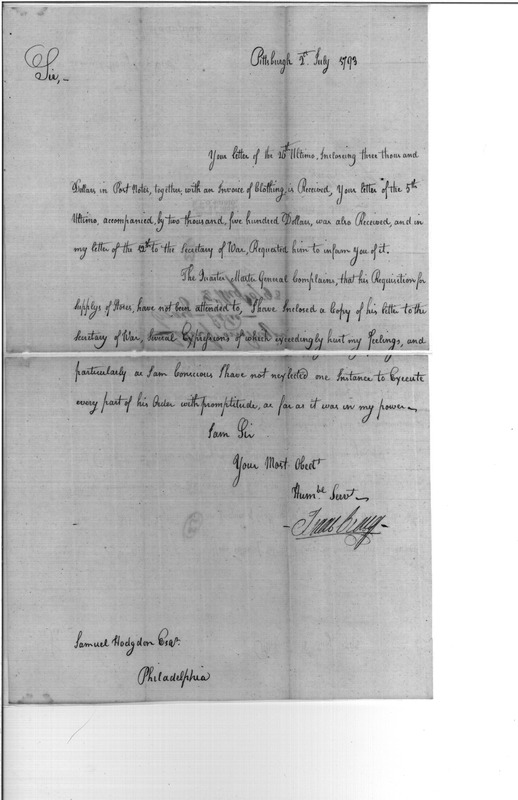 Pittsburgh 2d. July 1793
Sir,–
Your letter of the 20th Ultimo, Inclosing three thousand
Dollars in Post Notes, together, with an Invoice of Clothing, is Received, Your letter of the 5th
Ultimo, accompanied, by two thousand, five hundred Dollars, was also Received, and in
my letter of the 12th to the Secretary of War, Requested him to inform you of it.
The Quarter Master General Complains, that his Requisition for
Supplys of Stores, have not been attended to, I have Inclosed a Copy of his letter to the
Secretary of War, Several Expressions of which exceedingly hurt my Feelings, and
particularly as I am Conscious I have not neglected one Instance to Execute
every part of his Order with promptitude, as far as it was in my power–
I am Sir
Your Most Obedt
Humble Servt–
–Isaac Craig–
Samuel Hodgdon Esqr.
Philadelphia